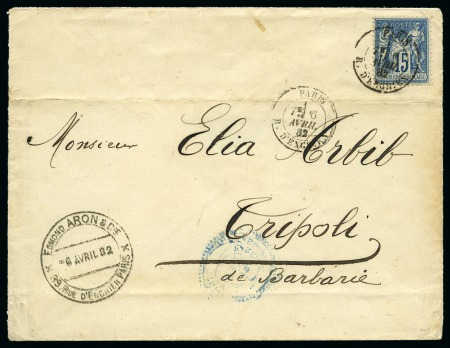 PARIS
R. D'ENGHIEN
15
PARIS
1
6
AVRIL
82
R. D'ENGHIEN
Monsieur Elia Arbib
Tripoli
de Barbarie
EDMOND ARON & CIE
AVRIL 82
39, RUE D'ENGHIEN PARIS